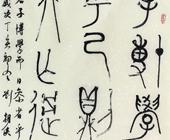 子博學
乎己則
行無過
君子博學而日參省乎
歲次丁亥初冬 劉